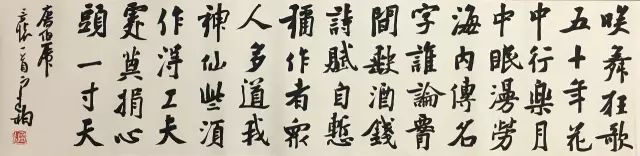 咲舞狂歌
五十年花
中行樂月
中眠漫勞
海内傳名
字誰論
間缺酒錢
詩賦自慙
稱作者眾
人多道我
神仙些須
作得工夫
處莫損心
頭一寸天
唐伯虎
言懷一首